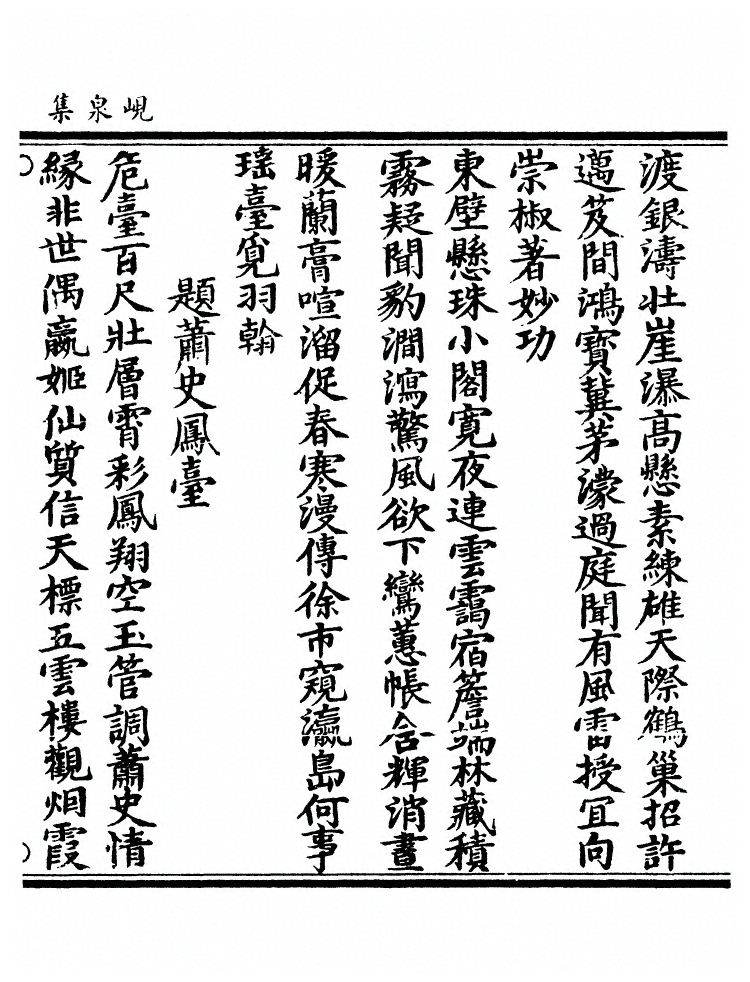 峴泉集
渡銀濤壯崖瀑高懸素練雄天際鶴巢招許
邁笈間鴻寶冀茅濛過庭聞有風雷授冝向
崇椒著妙功
東壁懸珠小閣寛夜連雲靄宿簷端林藏積
霧疑聞豹澗瀉驚風欲下鸞蕙帳含輝消晝
暖蘭膏喧溜促春寒漫傳徐市窺瀛島何事
瑶臺覓羽翰
題蕭史鳳臺
危臺百尺壯層霄彩鳳翔空玉管調蕭史情
緣非世偶嬴姬仙質信天標五雲樓觀烟霞